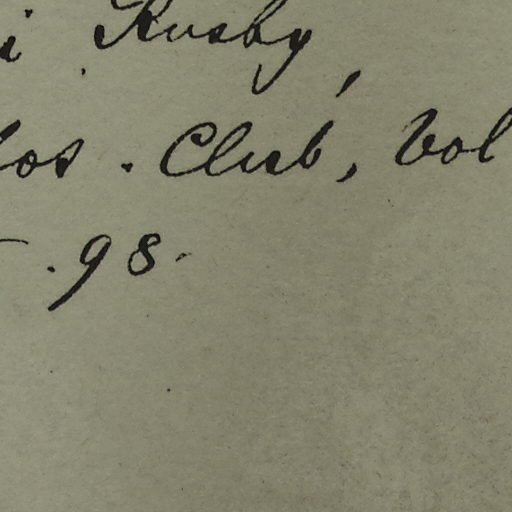 i Rusby,
los. Club, Vol
. 98.